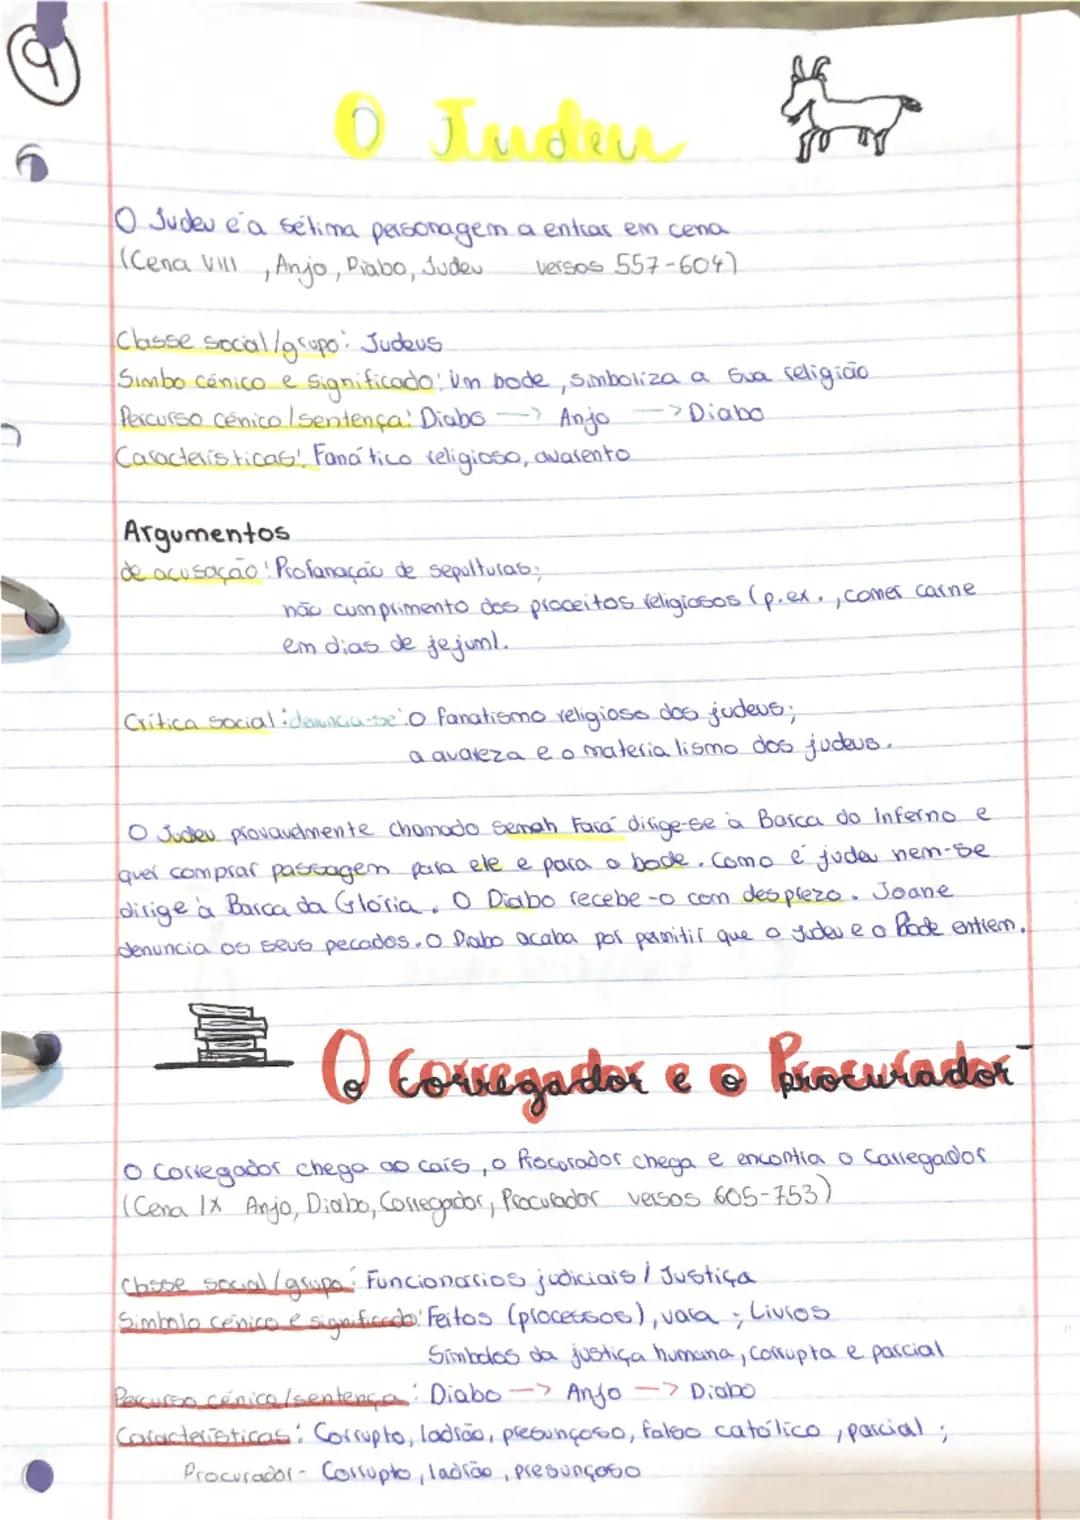 9
O Judeu
O Judeu é a sétima personagem a entrar em cena
(Cena VIII , Anjo, Diabo, Judeu versos 557-604)
Classe social/grupo: Judeus
Simbo cénico e significado: Um bode, simboliza a sua religião
Percurso cénico/sentença: Diabo -> Anjo -> Diabo
Características: Fanático religioso, avarento
Argumentos
de acusação: Profanação de sepulturas;
não cumprimento dos proceitos religiosos (p.ex., comer carne
em dias de jejum).
Crítica social: denuncia-se: o fanatismo religioso dos judeus;
a avareza e o materialismo dos judeus.
O Judeu provavelmente chamado Semah Fará dirige-se à Barca do Inferno e
quer comprar passagem para ele e para o bode. Como é judeu nem-se
dirige à Barca da Glória. O Diabo recebe-o com desprezo. Joane
denuncia os seus pecados. O Diabo acaba por permitir que o judeu e o Bode entrem.
O Corregador e o Procurador
O Corregador chega ao cais, o Procorador chega e encontra o Carregador
(Cena IX Anjo, Diabo, Corregador, Procurador versos 605-753)
Classe social/grupo: Funcionarios judiciais / Justiça
Simbolo cénico e significado: Feitos (processos), vara ; Livros
Símbolos da justiça humana, corrupta e parcial
Percurso cénico/sentença: Diabo -> Anjo -> Diabo
Características: Corrupto, ladrão, presunçoso, falso católico, parcial ;
Procurador - Corrupto, ladrão, presunçoso